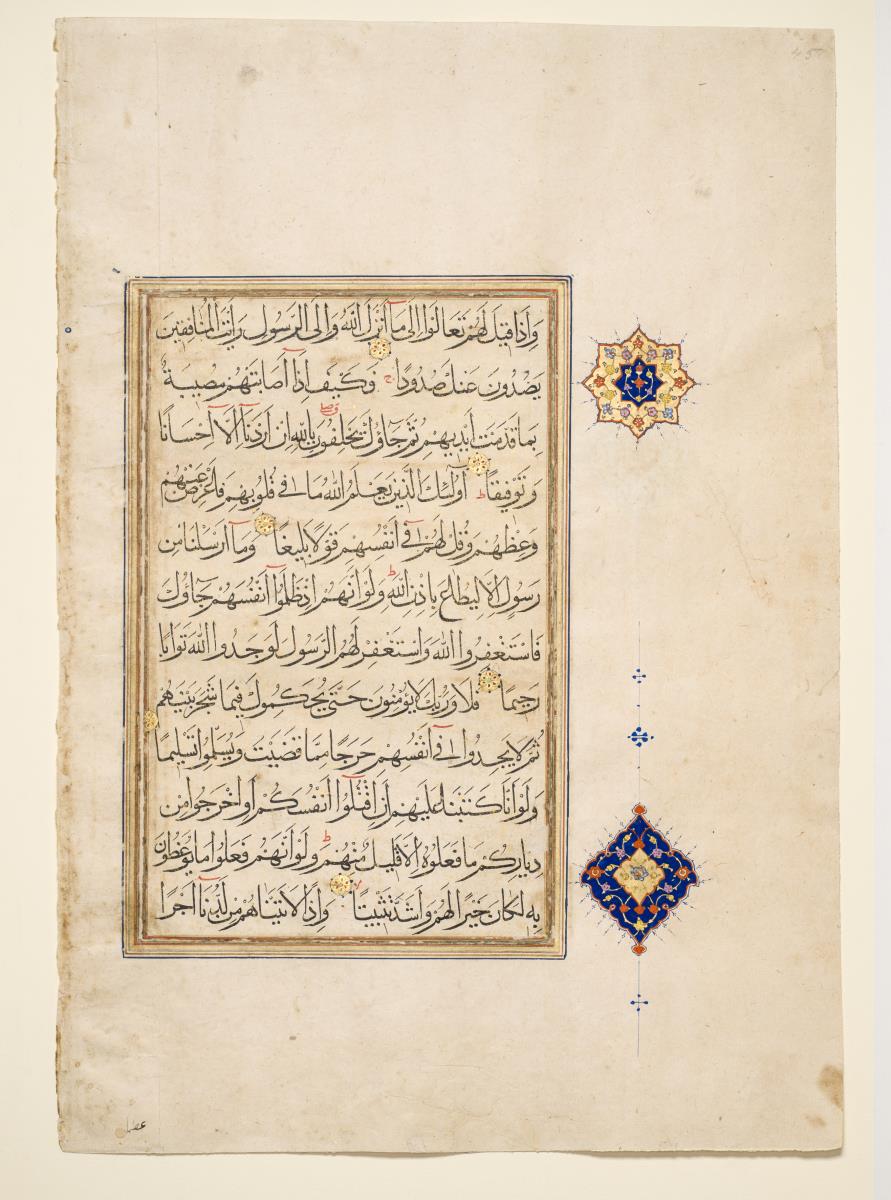 وَإِذَا قِيلَ لَهُمْ تَعَالَوْا إِلَى مَا أَنْزَلَ اللَّهُ وَإِلَى الرَّسُولِ رَأَيْتَ الْمُنَافِقِينَ
يَصُدُّونَ عَنْكَ صُدُودًا ج فَكَيْفَ إِذَا أَصَابَتْهُمْ مُصِيبَةٌ
بِمَا قَدَّمَتْ أَيْدِيهِمْ ثُمَّ جَاؤُكَ يَحْلِفُونَ بِاللَّهِ إِنْ أَرَدْنَا إِلَّا إِحْسَانًا
وَتَوْفِيقًا ط أُولَئِكَ الَّذِينَ يَعْلَمُ اللَّهُ مَا فِي قُلُوبِهِمْ فَأَعْرِضْ عَنْهُمْ
وَعِظْهُمْ وَقُلْ لَهُمْ فِي أَنْفُسِهِمْ قَوْلًا بَلِيغًا وَمَا أَرْسَلْنَا مِنْ
رَسُولٍ إِلَّا لِيُطَاعَ بِإِذْنِ اللَّهِ ط وَلَوْ أَنَّهُمْ إِذْ ظَلَمُوا أَنْفُسَهُمْ جَاؤُكَ
فَاسْتَغْفَرُوا اللَّهَ وَاسْتَغْفَرَ لَهُمُ الرَّسُولُ لَوَجَدُوا اللَّهَ تَوَّابًا
رَحِيمًا فَلَا وَرَبِّكَ لَا يُؤْمِنُونَ حَتَّى يُحَكِّمُوكَ فِيمَا شَجَرَ بَيْنَهُمْ
ثُمَّ لَا يَجِدُوا فِي أَنْفُسِهِمْ حَرَجًا مِمَّا قَضَيْتَ وَيُسَلِّمُوا تَسْلِيمًا
وَلَوْ أَنَّا كَتَبْنَا عَلَيْهِمْ أَنِ اقْتُلُوا أَنْفُسَكُمْ أَوِ اخْرُجُوا مِنْ
دِيَارِكُمْ مَا فَعَلُوهُ إِلَّا قَلِيلٌ مِنْهُمْ ط وَلَوْ أَنَّهُمْ فَعَلُوا مَا يُوعَظُونَ
بِهِ لَكَانَ خَيْرًا لَهُمْ وَأَشَدَّ تَثْبِيتًا لا وَإِذًا لَآتَيْنَاهُمْ مِنْ لَدُنَّا أَجْرًا